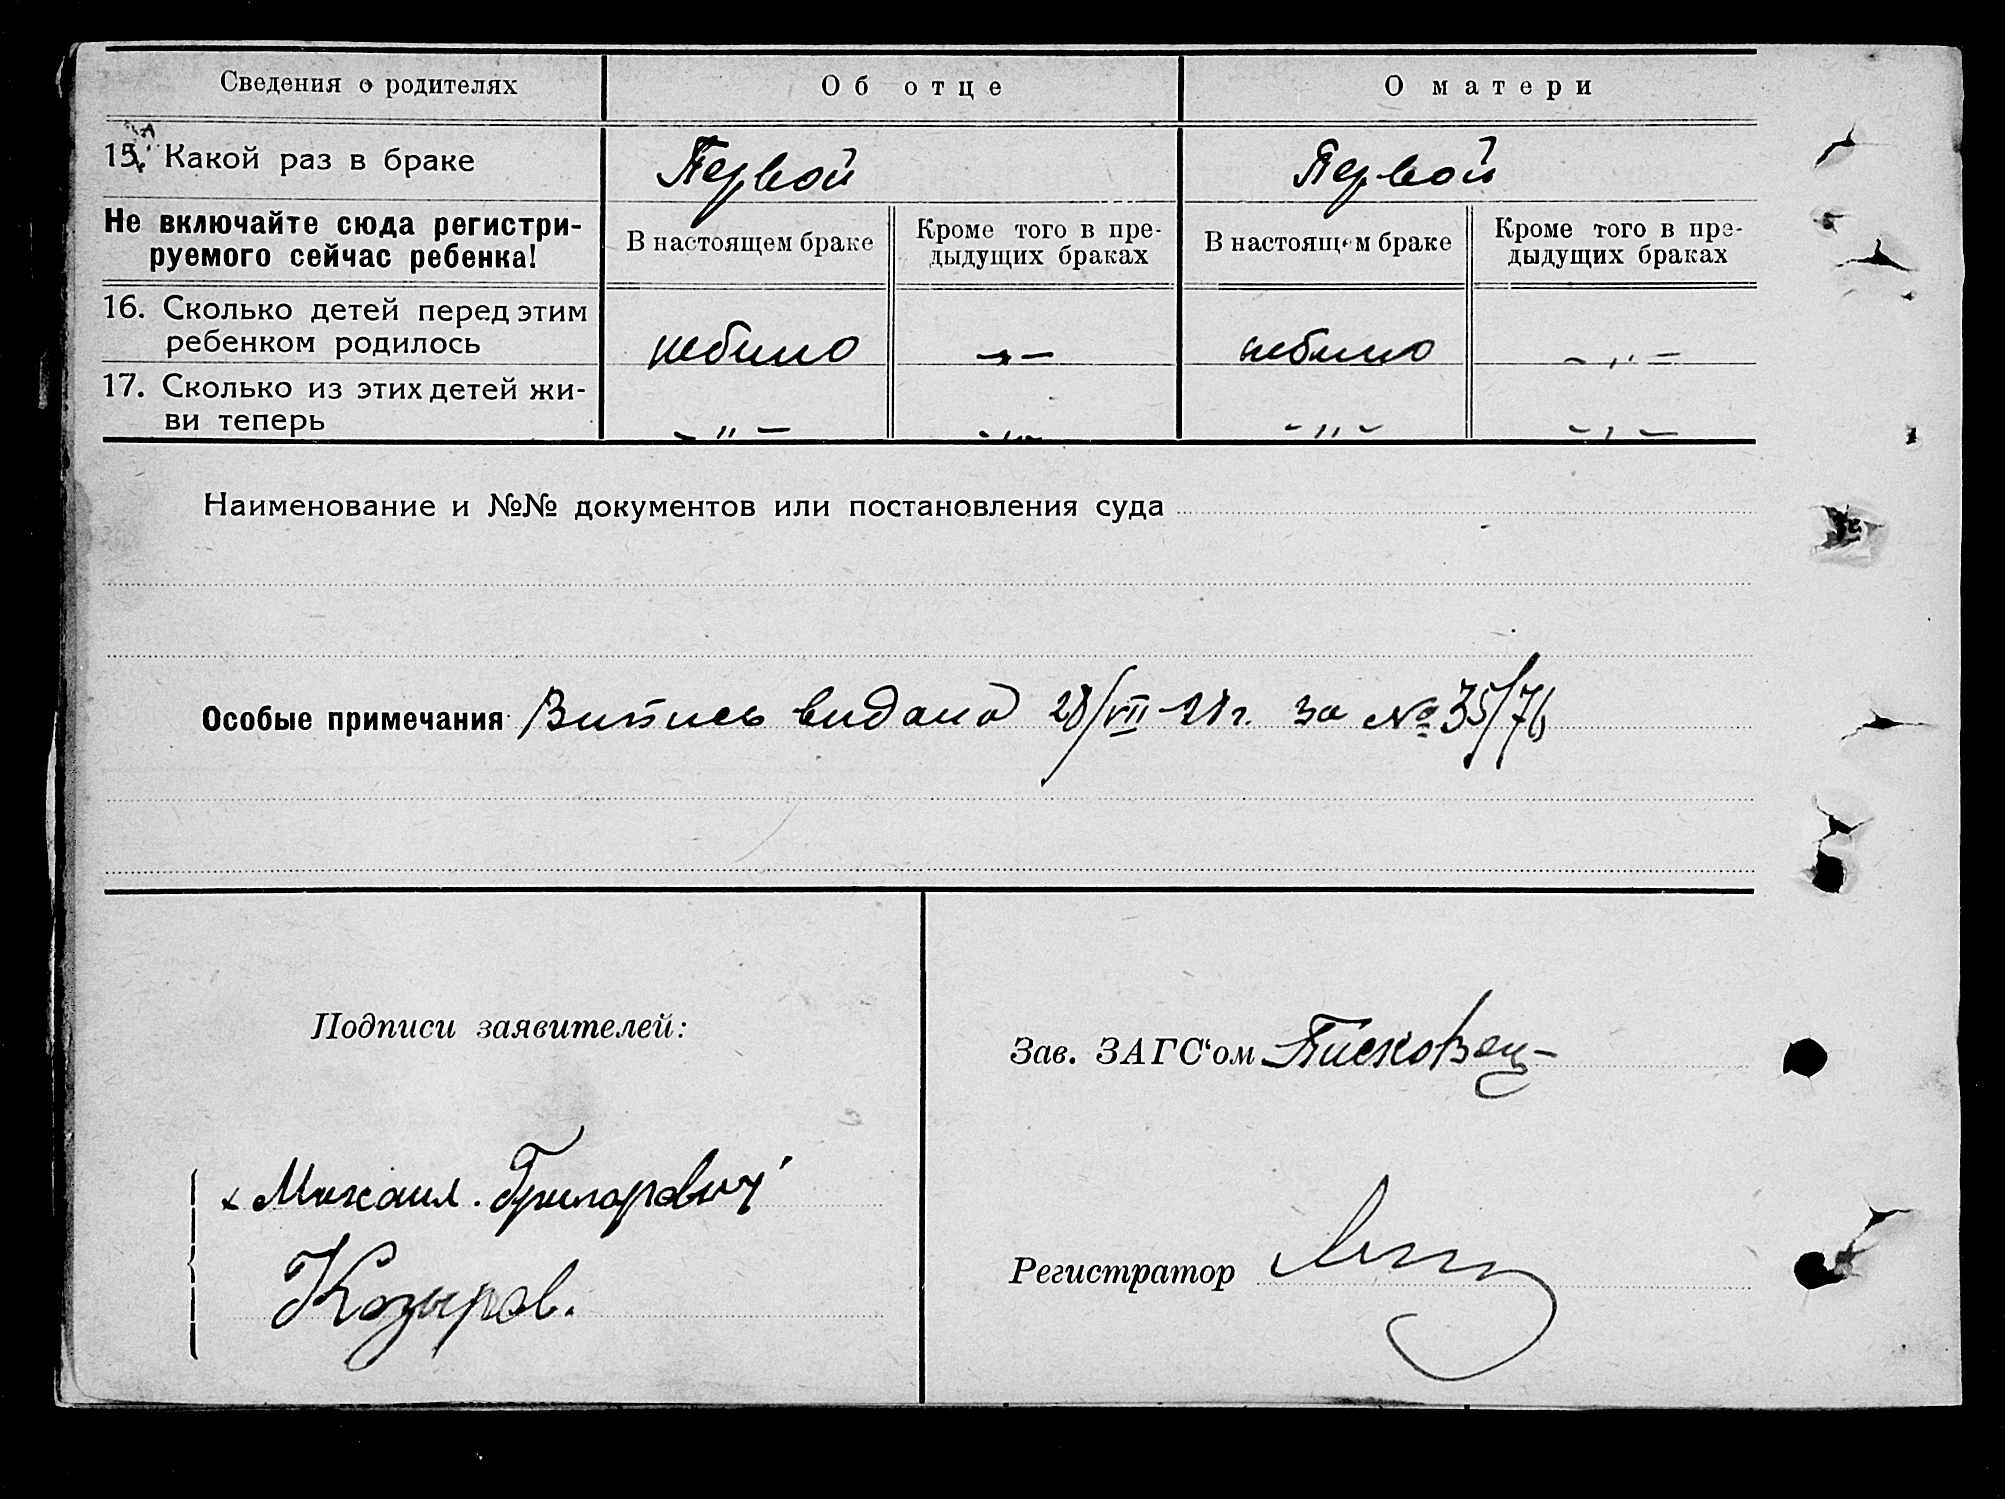 Сведения о родителях Об отце О матери
15. Какой раз в браке Первой Первой
Не включайте сюда регистри-
руемого сейчас ребенка!
В настоящем браке
Кроме того в пре-
дыдущих браках
В настоящем браке
Кроме того в пре-
дыдущих браках
16. Сколько детей перед этим
ребенком родилось небило -„- небило -„-
17. Сколько из этих детей жи-
ви теперь -„- -„- -„- -„-
Наименование и №№ документов или постановления суда
Особые примечания Випись видана 28/VII-28г. за № 35/76
Подписи заявителей:
Зав. ЗАГС'ом Писковец
х Михаил. Григорович
Козыров.
Регистратор